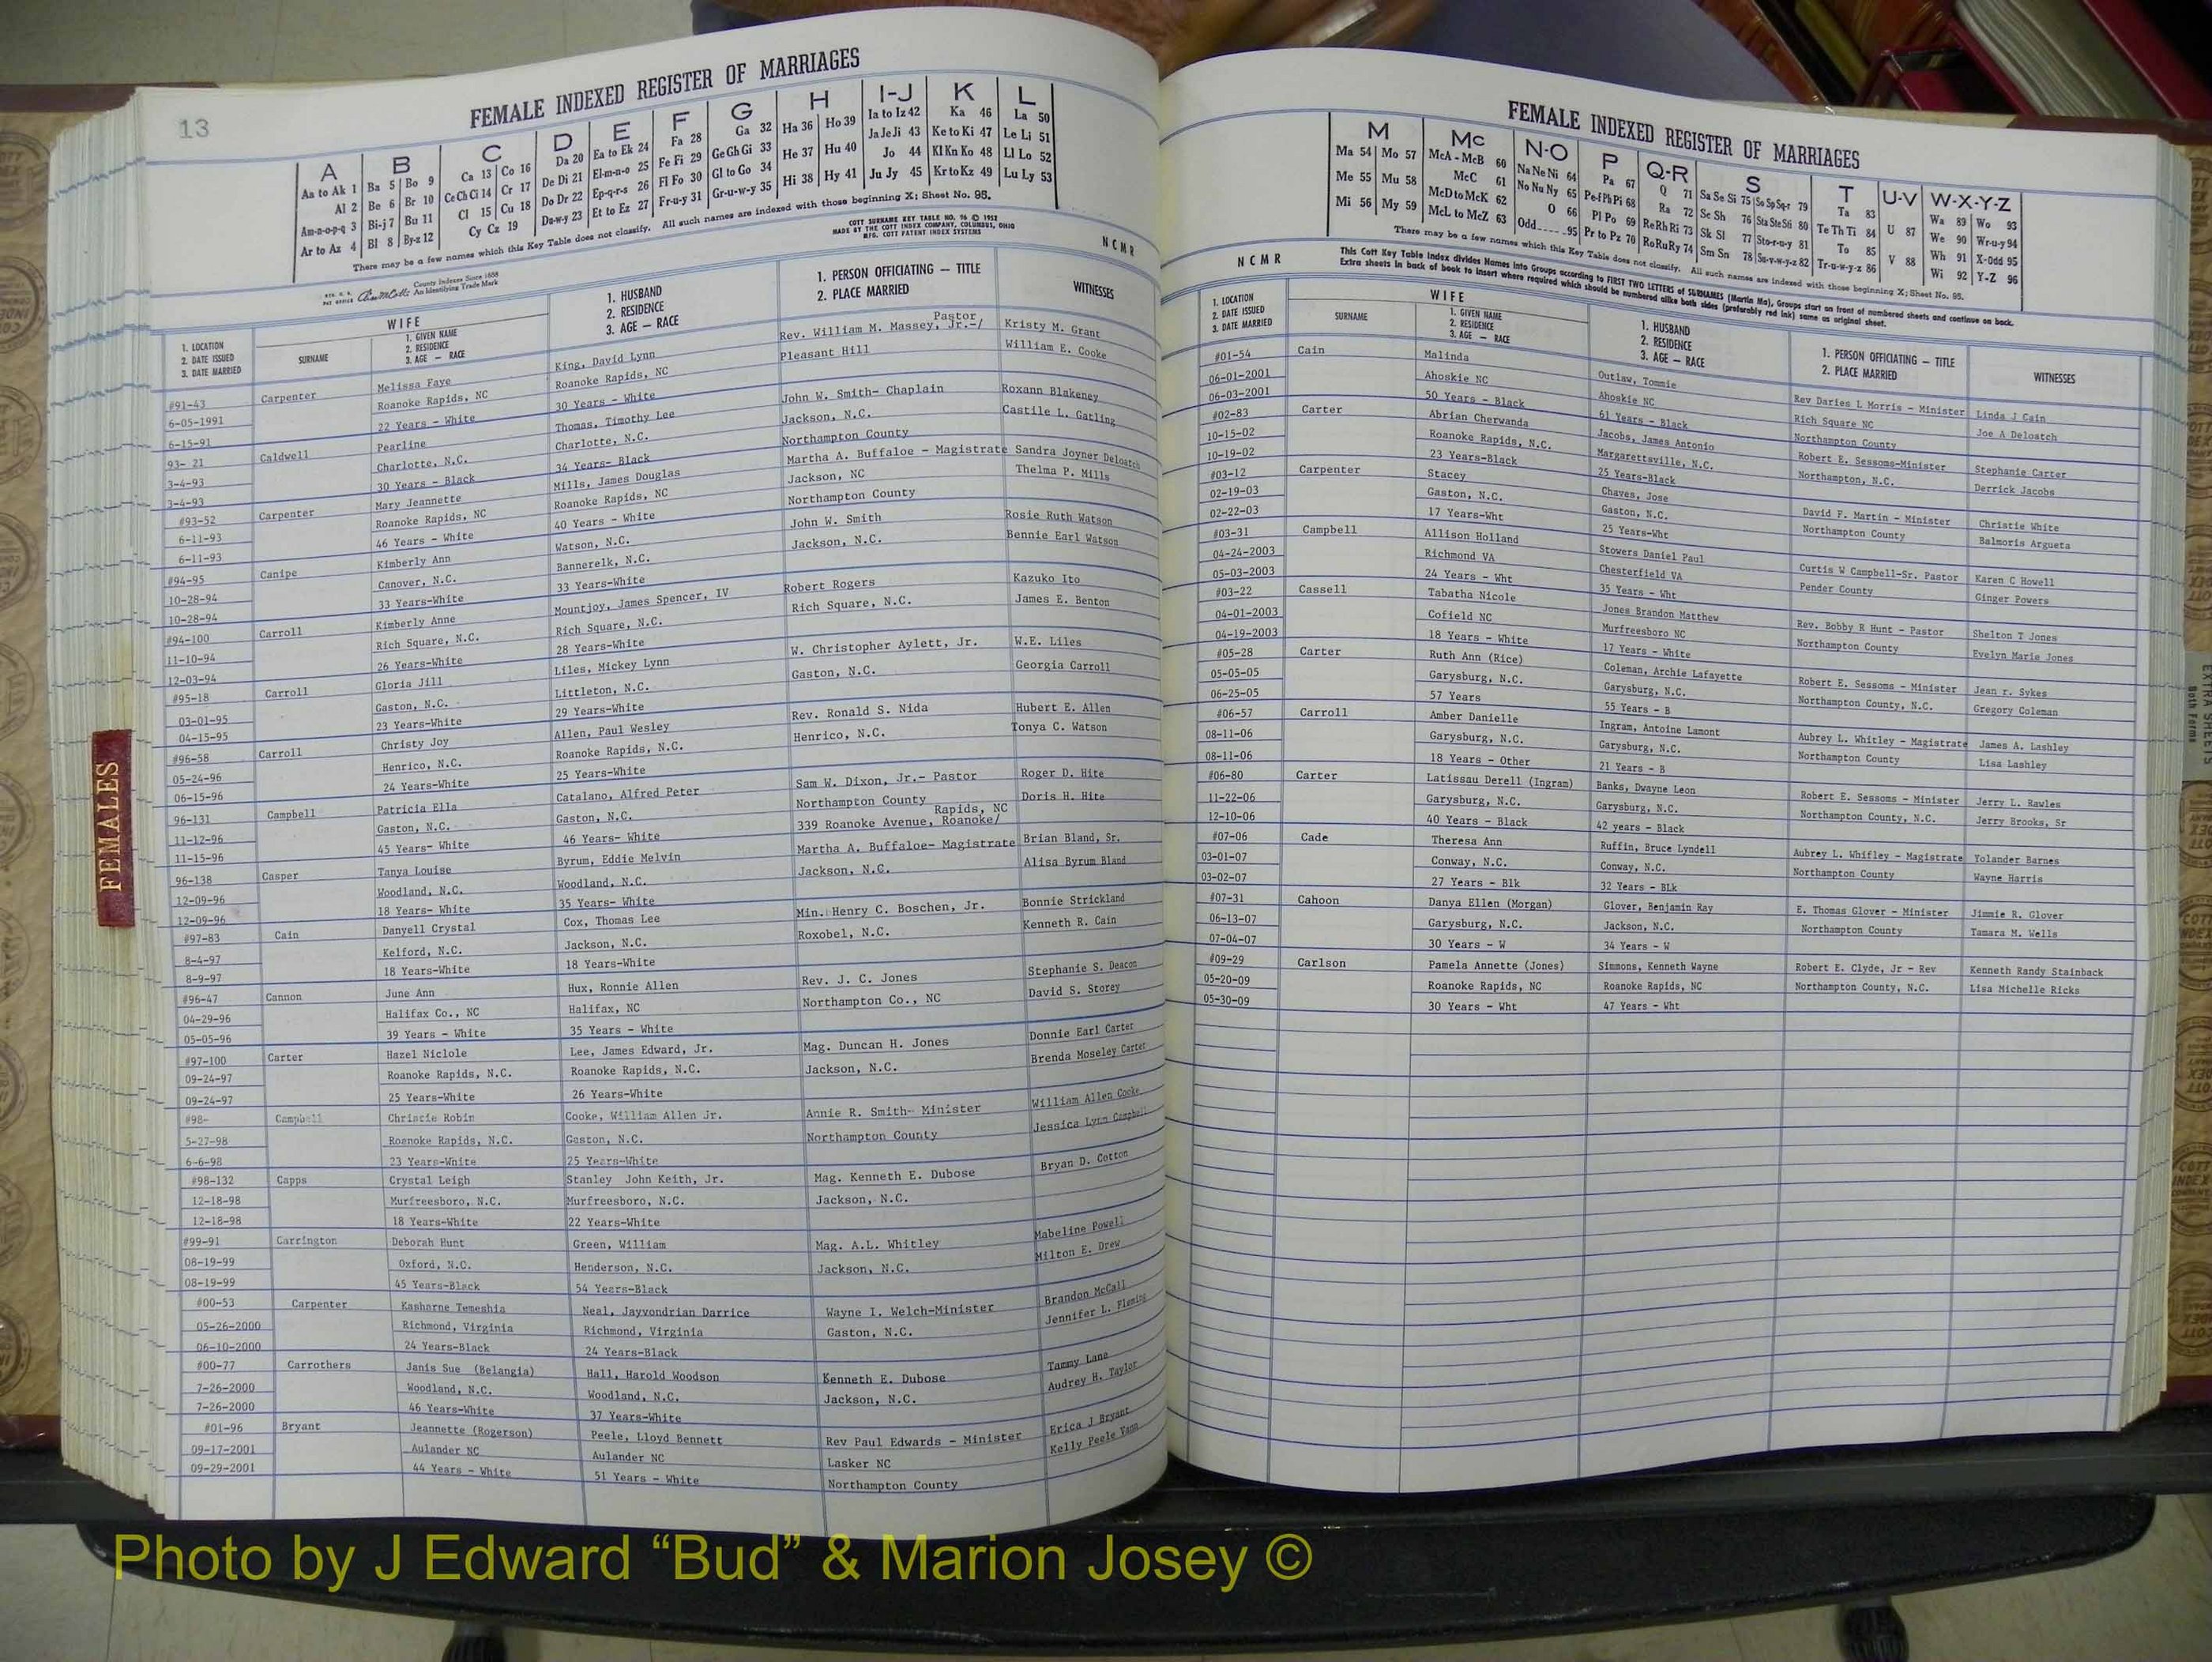 13
FEMALE INDEXED REGISTER OF MARRIAGES
A B C D E F G H I-J K L
Aa to Ak 1 Ba 5 Bo 9 Ca 13 Co 16 Da 20 Ea to Ek 24 Fa 28 Ga 32 Ha 36 Ho 39 Ia to Iz 42 Ka 46 La 50
Al 2 Be 6 Br 10 Ce Ch Ci 14 Cr 17 De Di 21 El-m-n-o 25 Fe Fi 29 Ge Gh Gi 33 He 37 Hu 40 Ja Je Ji 43 Ke to Ki 47 Le Li 51
Am-n-o-p-q 3 Bi-j 7 Bu 11 Cl 15 Cu 18 Do Dr 22 Ep-q-r-s 26 Fl Fo 30 Gl to Go 34 Hi 38 Hy 41 Jo 44 Kl Kn Ko 48 Ll Lo 52
Ar to Az 4 Bl 8 By-z 12 Cy Cz 19 Du-w-y 23 Et to Ez 27 Fr-u-y 31 Gr-u-w-y 35 Ju Jy 45 Kr to Kz 49 Lu Ly 53
There may be a few names which this Key Table does not classify. All such names are indexed with those beginning X; Sheet No. 95.
COTT SURNAME KEY TABLE NO. 96 © 1952
MADE BY THE COTT INDEX COMPANY, COLUMBUS, OHIO
MFG. COTT PATENT INDEX SYSTEMS
County Indexes Since 1888
An Identifying Trade Mark
NCMR
1. LOCATION
2. DATE ISSUED
3. DATE MARRIED
WIFE
SURNAME
1. GIVEN NAME
2. RESIDENCE
3. AGE — RACE
1. HUSBAND
2. RESIDENCE
3. AGE — RACE
1. PERSON OFFICIATING — TITLE
2. PLACE MARRIED
WITNESSES
#91-43 Carpenter Melissa Faye King, David Lynn Rev. William M. Massey, Jr.-/ Pastor Kristy M. Grant
6-05-1991 Roanoke Rapids, NC Roanoke Rapids, NC Pleasant Hill William E. Cooke
6-15-91 22 Years - White 30 Years - White
93- 21 Caldwell Pearline Thomas, Timothy Lee John W. Smith- Chaplain Roxann Blakeney
3-4-93 Charlotte, N.C. Charlotte, N.C. Jackson, N.C. Castile L. Gatling
3-4-93 30 Years - Black 34 Years- Black Northampton County
#93-52 Carpenter Mary Jeannette Mills, James Douglas Martha A. Buffaloe - Magistrate Sandra Joyner Deloatch
6-11-93 Roanoke Rapids, NC Roanoke Rapids, NC Jackson, NC Thelma P. Mills
6-11-93 46 Years - White 40 Years - White Northampton County
#94-95 Canipe Kimberly Ann Watson, N.C. John W. Smith Rosie Ruth Watson
10-28-94 Canover, N.C. Bannerelk, N.C. Jackson, N.C. Bennie Earl Watson
10-28-94 33 Years-White 33 Years-White
#94-100 Carroll Kimberly Anne Mountjoy, James Spencer, IV Robert Rogers Kazuko Ito
11-10-94 Rich Square, N.C. Rich Square, N.C. Rich Square, N.C. James E. Benton
12-03-94 26 Years-White 28 Years-White
#95-18 Carroll Gloria Jill Liles, Mickey Lynn W. Christopher Aylett, Jr. W.E. Liles
03-01-95 Gaston, N.C. Littleton, N.C. Gaston, N.C. Georgia Carroll
04-15-95 23 Years-White 29 Years-White
#96-58 Carroll Christy Joy Allen, Paul Wesley Rev. Ronald S. Nida Hubert E. Allen
05-24-96 Henrico, N.C. Roanoke Rapids, N.C. Henrico, N.C. Tonya C. Watson
06-15-96 24 Years-White 25 Years-White
96-131 Campbell Patricia Ella Catalano, Alfred Peter Sam W. Dixon, Jr.- Pastor Roger D. Hite
11-12-96 Gaston, N.C. Gaston, N.C. Northampton County Doris H. Hite
11-15-96 45 Years- White 46 Years- White 339 Roanoke Avenue, Roanoke/ Rapids, NC
96-138 Casper Tanya Louise Byrum, Eddie Melvin Martha A. Buffaloe- Magistrate Brian Bland, Sr.
12-09-96 Woodland, N.C. Woodland, N.C. Jackson, N.C. Alisa Byrum Bland
12-09-96 18 Years- White 35 Years- White
#97-83 Cain Danyell Crystal Cox, Thomas Lee Min. Henry C. Boschen, Jr. Bonnie Strickland
8-4-97 Kelford, N.C. Jackson, N.C. Roxobel, N.C. Kenneth R. Cain
8-9-97 18 Years-White 18 Years-White
#96-47 Cannon June Ann Hux, Ronnie Allen Rev. J. C. Jones Stephanie S. Deacon
04-29-96 Halifax Co., NC Halifax, NC Northampton Co., NC David S. Storey
05-05-96 39 Years - White 35 Years - White
#97-100 Carter Hazel Niclole Lee, James Edward, Jr. Mag. Duncan H. Jones Donnie Earl Carter
09-24-97 Roanoke Rapids, N.C. Roanoke Rapids, N.C. Jackson, N.C. Brenda Moseley Carter
09-24-97 25 Years-White 26 Years-White
#98- Campbell Christie Robin Cooke, William Allen Jr. Annie R. Smith- Minister William Allen Cooke
5-27-98 Roanoke Rapids, N.C. Gaston, N.C. Northampton County Jessica Lynn Campbell
6-6-98 23 Years-White 25 Years-White
#98-132 Capps Crystal Leigh Stanley John Keith, Jr. Mag. Kenneth E. Dubose Bryan D. Cotton
12-18-98 Murfreesboro, N.C. Murfreesboro, N.C. Jackson, N.C.
12-18-98 18 Years-White 22 Years-White
#99-91 Carrington Deborah Hunt Green, William Mag. A.L. Whitley Mabeline Powell
08-19-99 Oxford, N.C. Henderson, N.C. Jackson, N.C. Milton E. Drew
08-19-99 45 Years-Black 54 Years-Black
#00-53 Carpenter Kasharne Temeshia Neal, Jayvondrian Darrice Wayne I. Welch-Minister Brandon McCall
05-26-2000 Richmond, Virginia Richmond, Virginia Gaston, N.C. Jennifer L. Fleming
06-10-2000 24 Years-Black 24 Years-Black
#00-77 Carrothers Janis Sue (Belangia) Hall, Harold Woodson Kenneth E. Dubose Tammy Lane
7-26-2000 Woodland, N.C. Woodland, N.C. Jackson, N.C. Audrey H. Taylor
7-26-2000 46 Years-White 37 Years-White
#01-96 Bryant Jeannette (Rogerson) Peele, Lloyd Bennett Rev Paul Edwards - Minister Erica J Bryant
09-17-2001 Aulander NC Aulander NC Lasker NC Kelly Peele Vann
09-29-2001 44 Years - White 51 Years - White Northampton County
FEMALES
FEMALE INDEXED REGISTER OF MARRIAGES
M Mc N-O P Q-R S T U-V W-X-Y-Z
Ma 54 Mo 57 McA - McB 60 Na Ne Ni 64 Pa 67 Q 71 Sa Sc Si 75 So Sp Sq-r 79 Ta 83 U 87 Wa 89 Wo 93
Me 55 Mu 58 McC 61 No Nu Ny 65 Pe-f Ph Pi 68 Ra 72 Se Sh 76 Sta Ste Sti 80 Te Th Ti 84 V 88 We 90 Wr-u-y 94
Mi 56 My 59 McD to McK 62 O 66 Pl Po 69 Re Rh Ri 73 Sk Sl 77 Sto-r-u-y 81 To 85 Wh 91 X-Odd 95
McL to McZ 63 Odd 95 Pr to Pz 70 Ro Ru Ry 74 Sm Sn 78 Su-v-w-y-z 82 Tr-u-w-y-z 86 Wi 92 Y-Z 96
There may be a few names which this Key Table does not classify. All such names are indexed with those beginning X; Sheet No. 95.
This Cott Key Table Index divides Names into Groups according to FIRST TWO LETTERS of SURNAMES (Martin Ma), Groups start on front of numbered sheets and continue on back.
Extra sheets in back of book to insert where required which should be numbered alike both sides (preferably red ink) same as original sheet.
NCMR
1. LOCATION
2. DATE ISSUED
3. DATE MARRIED
WIFE
SURNAME
1. GIVEN NAME
2. RESIDENCE
3. AGE — RACE
1. HUSBAND
2. RESIDENCE
3. AGE — RACE
1. PERSON OFFICIATING — TITLE
2. PLACE MARRIED
WITNESSES
#01-54 Cain Malinda Outlaw, Tommie Rev Daries L Morris - Minister Linda J Cain
06-01-2001 Ahoskie NC Ahoskie NC Rich Square NC Joe A Deloatch
06-03-2001 50 Years - Black 61 Years - Black Northampton County
#02-83 Carter Abrian Cherwanda Jacobs, James Antonio Robert E. Sessoms-Minister Stephanie Carter
10-15-02 Roanoke Rapids, N.C. Margarettsville, N.C. Northampton, N.C. Derrick Jacobs
10-19-02 23 Years-Black 25 Years-Black
#03-12 Carpenter Stacey Chaves, Jose David F. Martin - Minister Christie White
02-19-03 Gaston, N.C. Gaston, N.C. Northampton County Balmoris Argueta
02-22-03 17 Years-Wht 25 Years-Wht
#03-31 Campbell Allison Holland Stowers Daniel Paul Curtis W Campbell-Sr. Pastor Karen C Howell
04-24-2003 Richmond VA Chesterfield VA Pender County Ginger Powers
05-03-2003 24 Years - Wht 35 Years - Wht
#03-22 Cassell Tabatha Nicole Jones Brandon Matthew Rev. Bobby R Hunt - Pastor Shelton T Jones
04-01-2003 Cofield NC Murfreesboro NC Northampton County Evelyn Marie Jones
04-19-2003 18 Years - White 17 Years - White
#05-28 Carter Ruth Ann (Rice) Coleman, Archie Lafayette Robert E. Sessoms - Minister Jean r. Sykes
05-05-05 Garysburg, N.C. Garysburg, N.C. Northampton County, N.C. Gregory Coleman
06-25-05 57 Years 55 Years - B
#06-57 Carroll Amber Danielle Ingram, Antoine Lamont Aubrey L. Whitley - Magistrate James A. Lashley
08-11-06 Garysburg, N.C. Garysburg, N.C. Northampton County Lisa Lashley
08-11-06 18 Years - Other 21 Years - B
#06-80 Carter Latissau Derell (Ingram) Banks, Dwayne Leon Robert E. Sessoms - Minister Jerry L. Rawles
11-22-06 Garysburg, N.C. Garysburg, N.C. Northampton County, N.C. Jerry Brooks, Sr
12-10-06 40 Years - Black 42 years - Black
#07-06 Cade Theresa Ann Ruffin, Bruce Lyndell Aubrey L. Whifley - Magistrate Yolander Barnes
03-01-07 Conway, N.C. Conway, N.C. Northampton County Wayne Harris
03-02-07 27 Years - Blk 32 Years - BLk
#07-31 Cahoon Danya Ellen (Morgan) Glover, Benjamin Ray E. Thomas Glover - Minister Jimmie R. Glover
06-13-07 Garysburg, N.C. Jackson, N.C. Northampton County Tamara M. Wells
07-04-07 30 Years - W 34 Years - W
#09-29 Carlson Pamela Annette (Jones) Simmons, Kenneth Wayne Robert E. Clyde, Jr - Rev Kenneth Randy Stainback
05-20-09 Roanoke Rapids, NC Roanoke Rapids, NC Northampton County, N.C. Lisa Michelle Ricks
05-30-09 30 Years - Wht 47 Years - Wht
EXTRA SHEETS
Both Ferns
Photo by J Edward “Bud” & Marion Josey ©